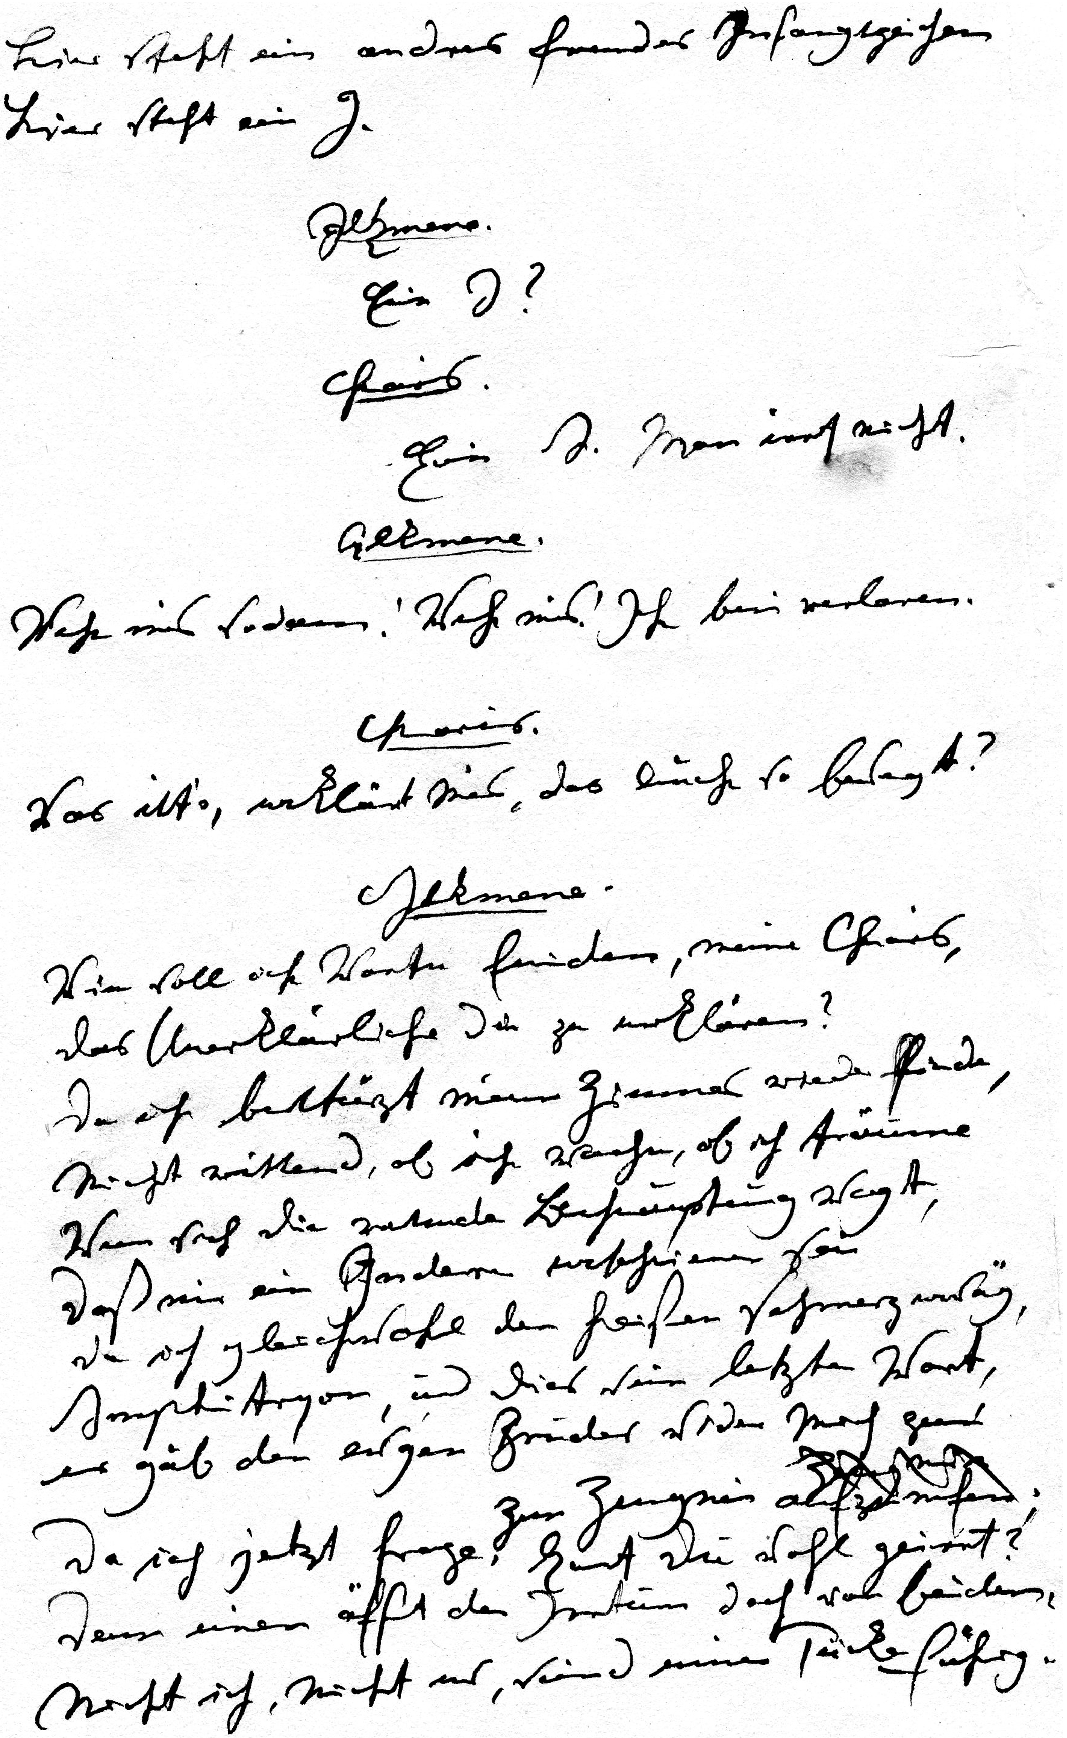 Hier steht ein andres fremdes Anfangszeichen
Hier steht ein J.
Alkmene.
Ein J?
Charis.
Ein J. Man irrt nicht.
Alkmene.
Weh mir sodann! Weh mir! Ich bin verloren.
Charis.
Was ists, erklärt mir, das Euch so bewegt?
Alkmene.
Wie soll ich Worte finden, meine Charis,
Das Unerklärliche dir zu erklären?
Da ich bestürzt mein Zimmer wieder finde,
Nicht wissend, ob ich wache, ob ich träume
Wenn sich die rasende Behauptung wagt,
Daß mir ein Anderer erschienen sei
Da ich gleichwohl den heißen Schmerz erwäg,
Amphitryon, und dies sein letztes Wort,
er gäb den eignen Bruder wider mich
zum Zeugnis
Da ich jetzt frage: hast du wohl geirrt?
Denn einen äfft der Irrtum doch von beiden,
Nicht ich, nicht er, sind einer Tücke fähig.